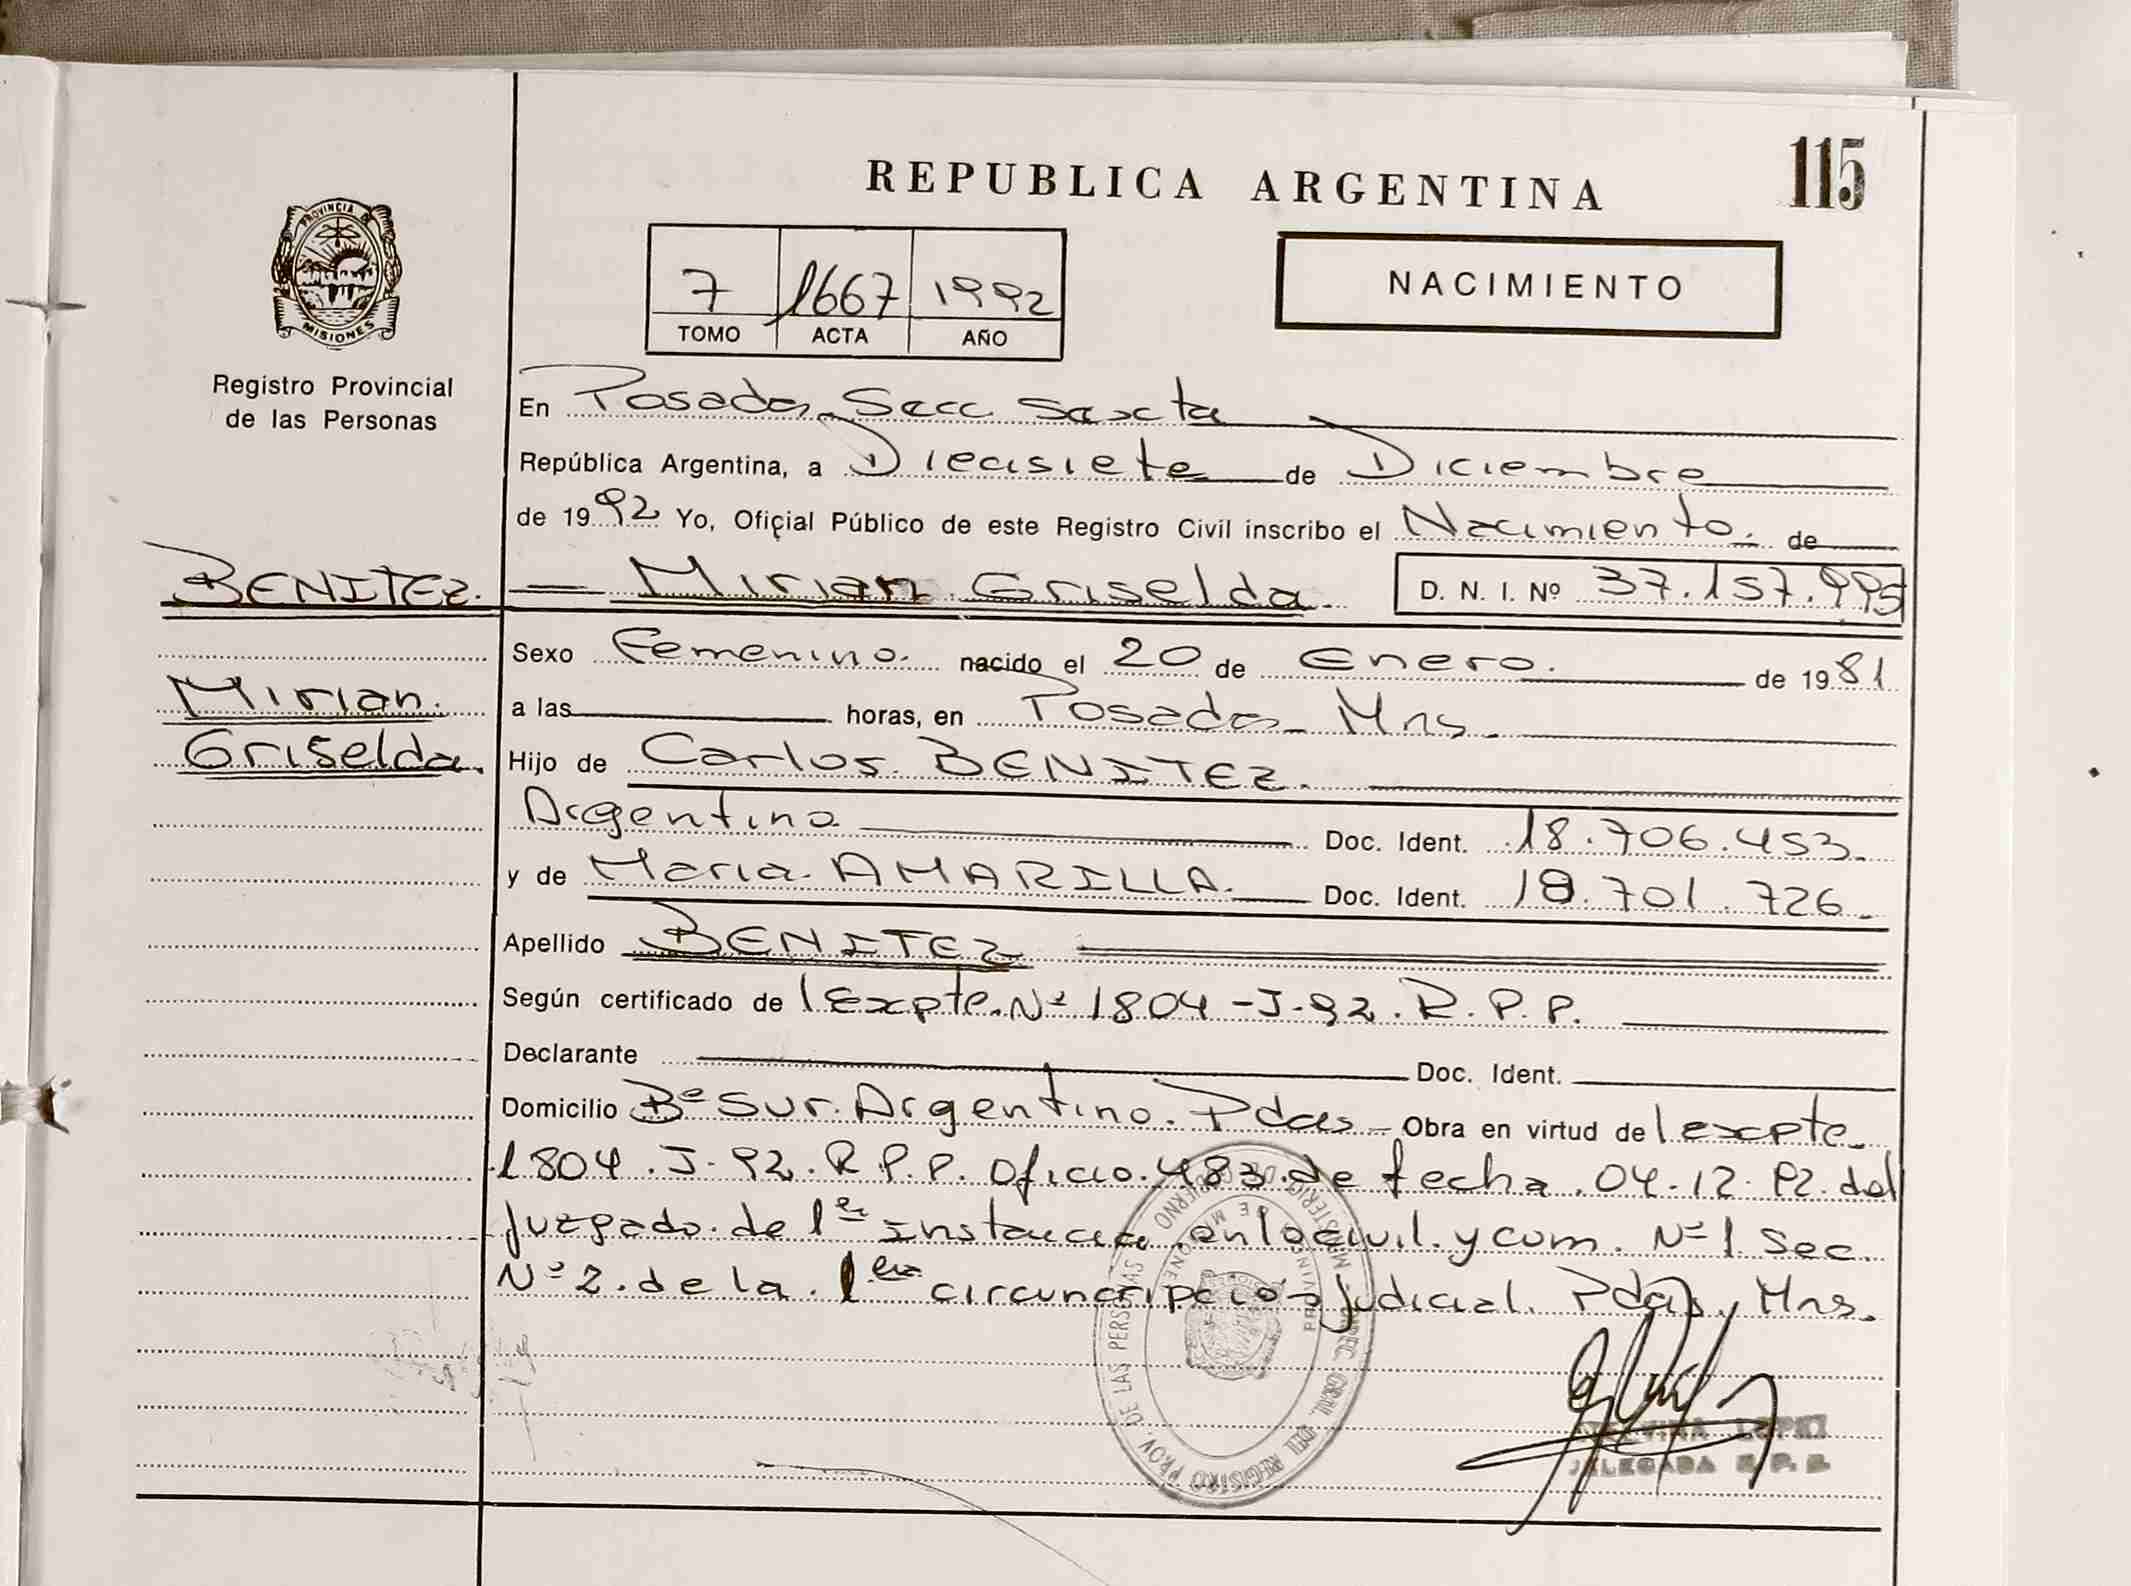 REPUBLICA ARGENTINA
115
PROVINCIA DE
MISIONES
Registro Provincial
de las Personas
7 1667 1992
TOMO ACTA AÑO
NACIMIENTO
En Posadas Secc. Sexta
República Argentina, a Diecisiete de Diciembre
de 1992 Yo, Oficial Público de este Registro Civil inscribo el Nacimiento. de
BENITEZ. Mirian Griselda. D. N. I. Nº 37.157.995
Sexo Femenino. nacido el 20 de Enero. de 1981
Mirian. a las horas, en Posadas Mns.
Griselda. Hijo de Carlos BENITEZ.
Argentina Doc. Ident. 18.706.453.
y de Maria AMARILLA. Doc. Ident. 18.701.726.
Apellido BENITEZ
Según certificado de Expte. Nº 1804-J-92. R.P.P.
Declarante Doc. Ident.
Domicilio Bº Sur Argentino. Pdas Obra en virtud de expte.
1804. J-92. R.P.P. Oficio. 483. de fecha. 04.12.92. del
juzgado. de 1era Instancia en lo civil. y com. Nº 1 Sec.
Nº 2. de la. 1era circuncripción judicial. Pdas, Mns.
PROV. DE LAS PERSONAS
MINISTERIO DE GOBIERNO
GRAL. DEL REGISTRO
PROVINCIA DE MISIONES
LOPEZ
DELEGADA R.P.P.